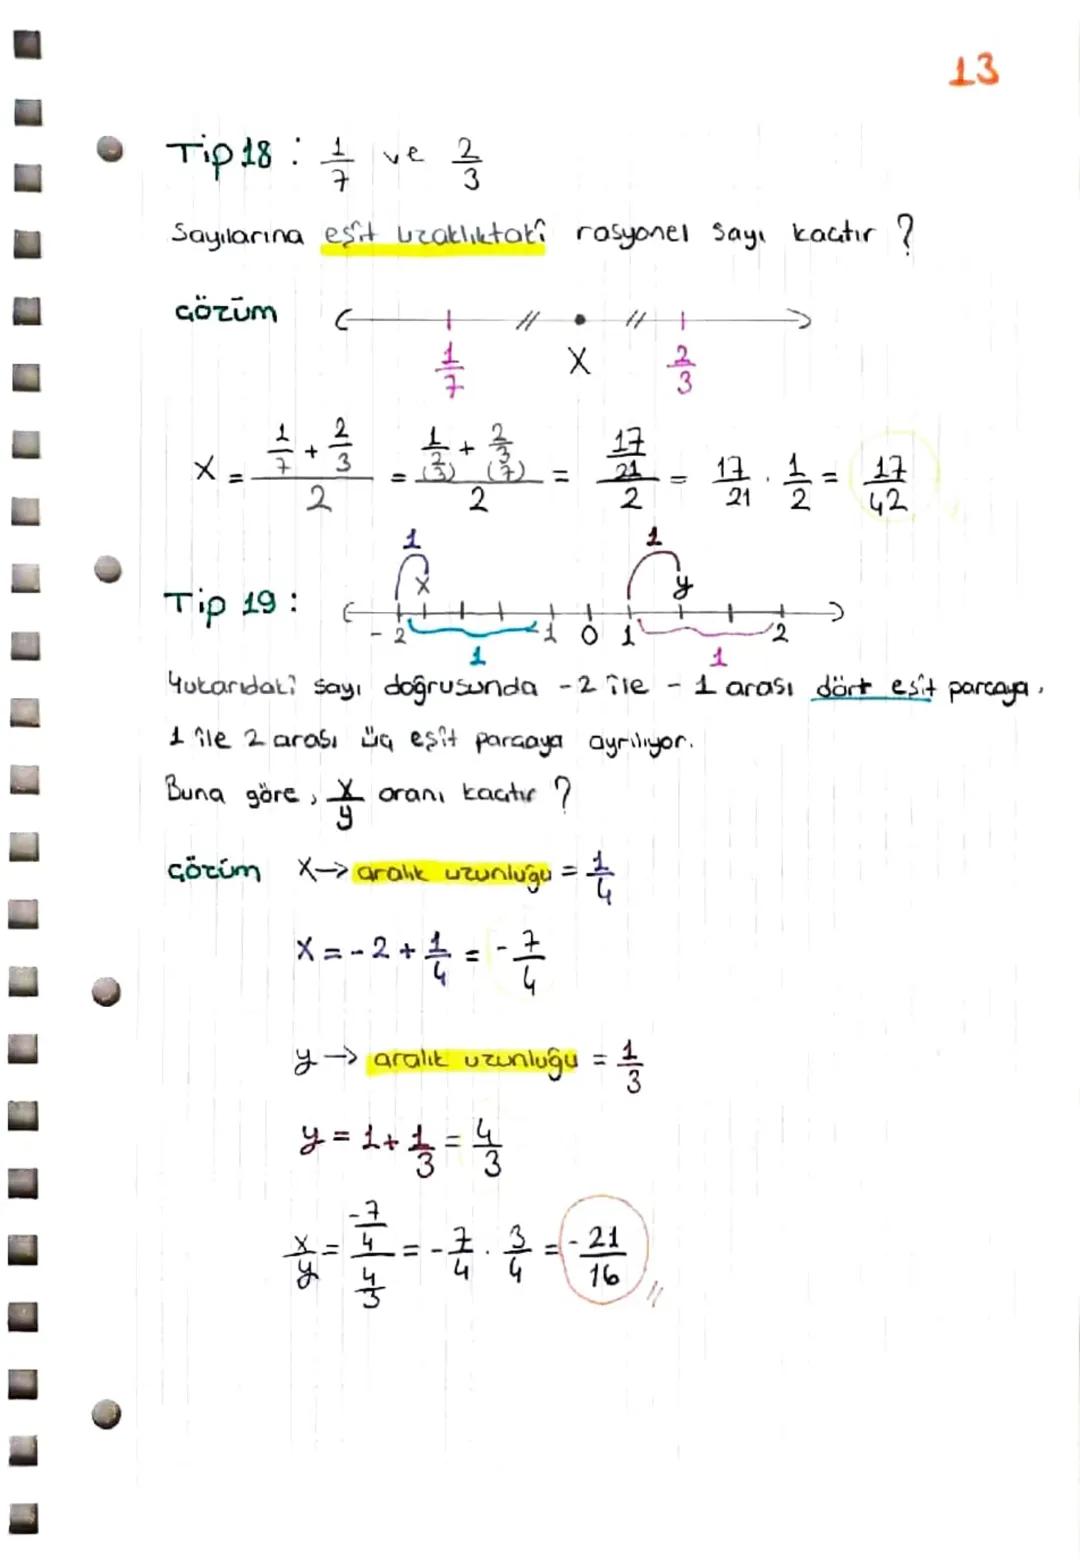 13
Tip 18 : 1/7 ve 2/3
Sayılarına eşit uzaklıktaki rasyonel sayı kaçtır ?
Çözüm
1/7 X 2/3
X = (1/7 + 2/3)/2 = (1/7 (3) + 2/3 (7))/2 = (17/21)/2 = 17/21 . 1/2 = 17/42
1 1
Tip 19 : x y
-2 -1 0 1 2
1 1
Yukarıdaki sayı doğrusunda -2 ile -1 arası dört eşit parçaya,
1 ile 2 arası üç eşit parçaya ayrılıyor.
Buna göre, x/y oranı kaçtır ?
Çözüm X→ aralık uzunluğu = 1/4
X = -2 + 1/4 = -7/4
y → aralık uzunluğu = 1/3
y = 1 + 1/3 = 4/3
x/y = (-7/4)/(4/3) = -7/4 . 3/4 = -21/16 //